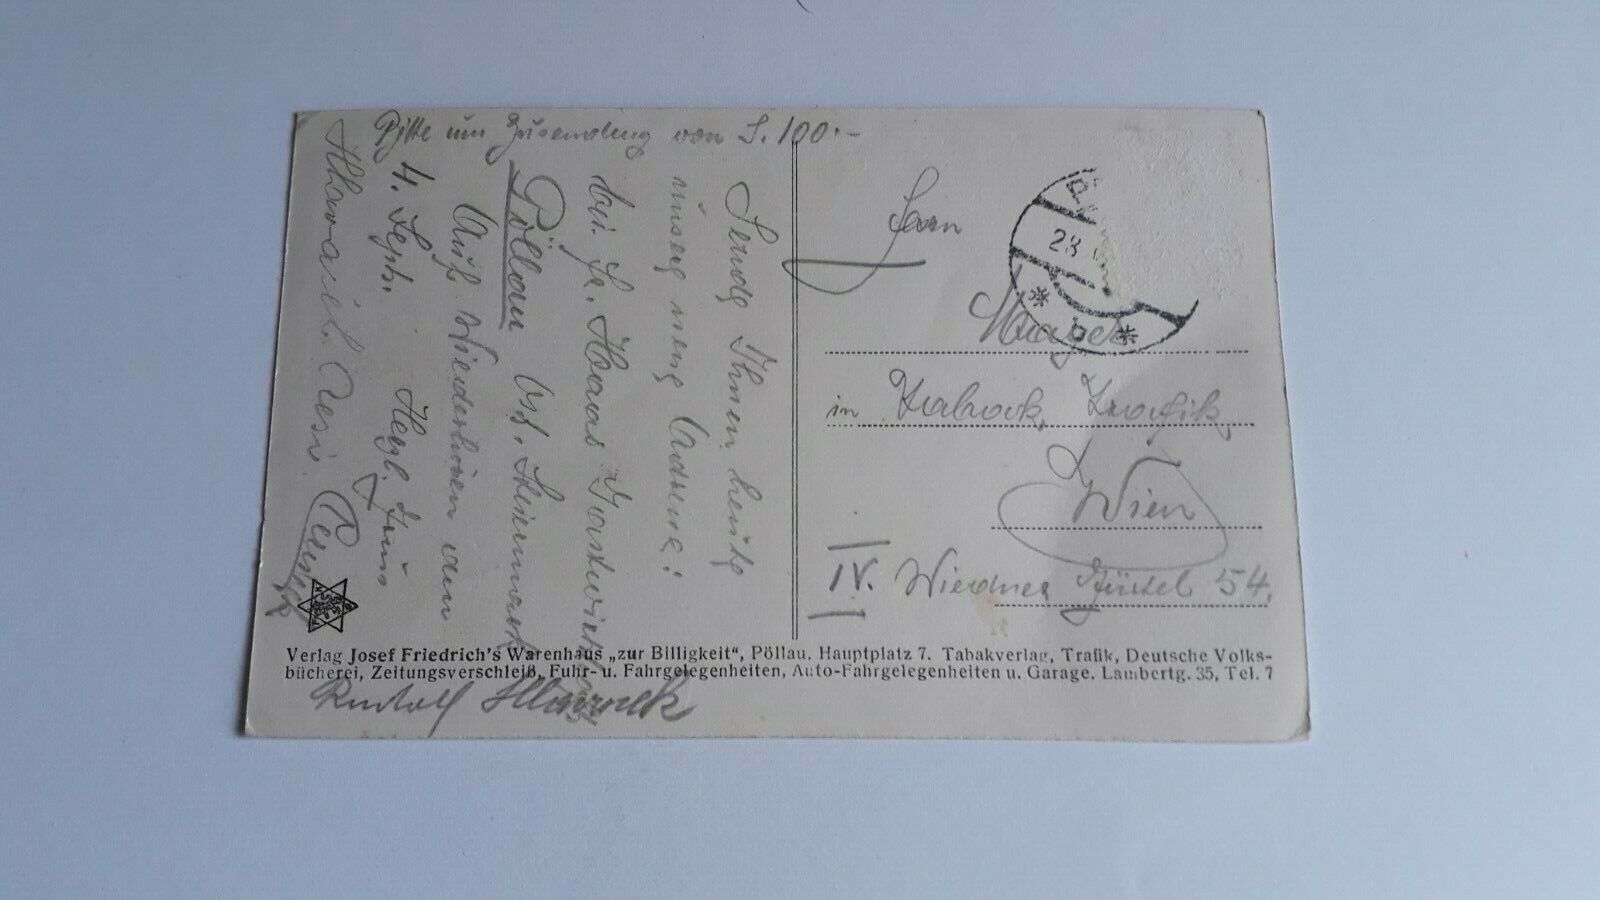 Bitte um Zusendung von S. 100.-
Sende Ihnen heute
unsere neue Adresse!
bei Fr. Haas Gastwirt
Pöllau Ost. Steiermark
Auf Wiedersehen am
4. Sept. Herzl. Grüße
Resi
Rudolf
Fam
Mayer
in Tabak Trafik
Wien
IV. Wiedner Gürtel 54.
28
Verlag Josef Friedrich's Warenhaus „zur Billigkeit“, Pöllau, Hauptplatz 7. Tabakverlag, Trafik, Deutsche Volks-
bücherei, Zeitungsverschleiß, Fuhr- u. Fahrgelegenheiten, Auto-Fahrgelegenheiten u. Garage. Lambertg. 35, Tel. 7